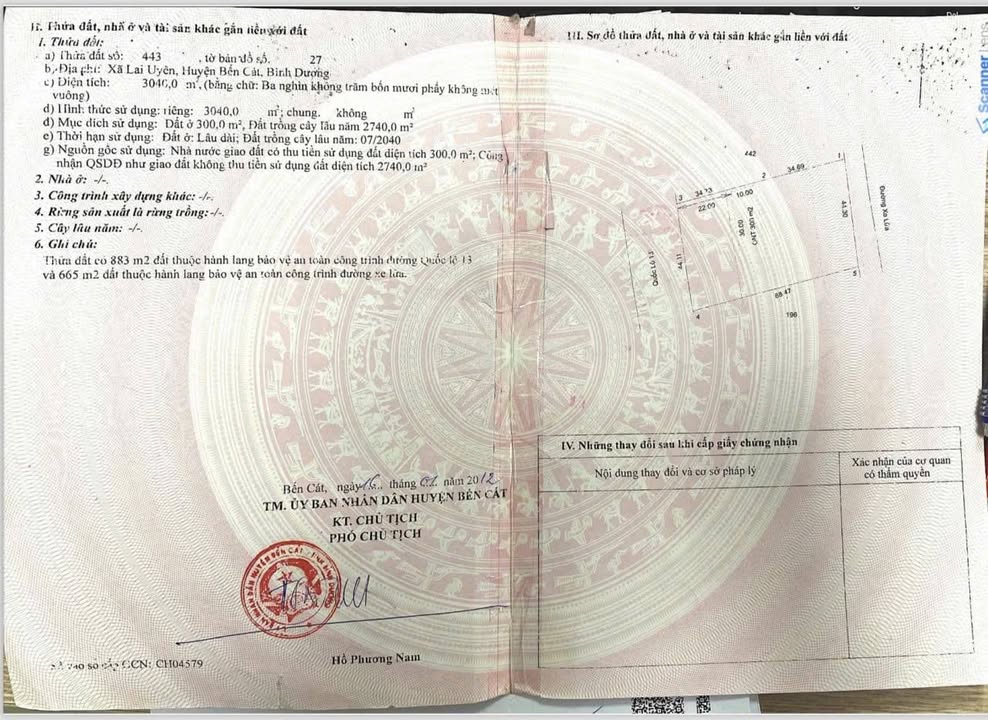 II. Thửa đất, nhà ở và tài sản khác gắn liền với đất
1. Thửa đất:
a) Thửa đất số: 443 , tờ bản đồ số: 27
b) Địa chỉ: Xã Lai Uyên, Huyện Bến Cát, Bình Dương
c) Diện tích: 3040,0 m², (bằng chữ: Ba nghìn không trăm bốn mươi phẩy không mét
vuông)
d) Hình thức sử dụng: riêng: 3040,0 m²; chung: không m²
đ) Mục đích sử dụng: Đất ở 300,0 m², Đất trồng cây lâu năm 2740,0 m²
e) Thời hạn sử dụng: Đất ở: Lâu dài; Đất trồng cây lâu năm: 07/2040
g) Nguồn gốc sử dụng: Nhà nước giao đất có thu tiền sử dụng đất diện tích 300,0 m²; Công
nhận QSDĐ như giao đất không thu tiền sử dụng đất diện tích 2740,0 m²
2. Nhà ở: -/-.
3. Công trình xây dựng khác: -/-.
4. Rừng sản xuất là rừng trồng: -/-.
5. Cây lâu năm: -/-.
6. Ghi chú:
Thửa đất có 883 m2 đất thuộc hành lang bảo vệ an toàn công trình đường Quốc lộ 13
và 665 m2 đất thuộc hành lang bảo vệ an toàn công trình đường xe lửa.
Bến Cát, ngày 16 tháng 01 năm 2012
TM. ỦY BAN NHÂN DÂN HUYỆN BẾN CÁT
KT. CHỦ TỊCH
PHÓ CHỦ TỊCH
Hồ Phương Nam
Số vào sổ cấp GCN: CH04579
III. Sơ đồ thửa đất, nhà ở và tài sản khác gắn liền với đất
442
1
34.69
2
3
34.13
10.00
22.00
30.00
44.11
44.30
Quốc Lộ 13
Đường Xe Lửa
5
68.47
4
196
IV. Những thay đổi sau khi cấp giấy chứng nhận
Nội dung thay đổi và cơ sở pháp lý
Xác nhận của cơ quan
có thẩm quyền
Scanner